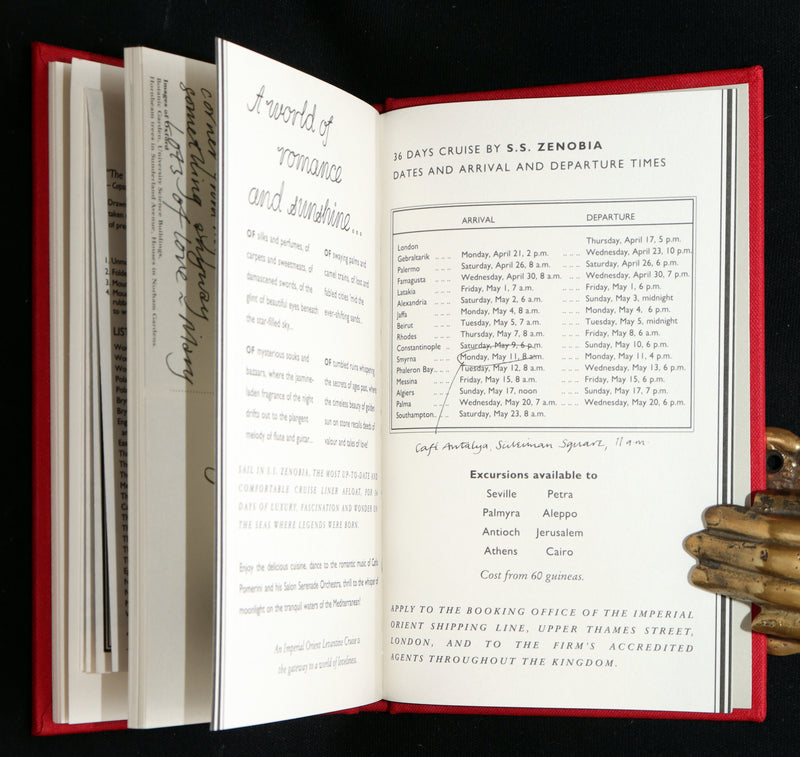 "The
LIST
corner from
something anyway
Lots of love - Mary
Images of Oxford
Botanic Garden, University Science Buildings,
Hornbeam trees in Sunderland Avenue, Houses in Norham Gardens.
A world of
romance
and sunshine...
OF silks and perfumes, of
carpets and sweetmeats, of
damascened swords, of the
glint of beautiful eyes beneath
the star-filled sky...
OF swaying palms and
camel trains, of lost and
fabled cities 'mid the
ever-shifting sands...
OF mysterious souks and
bazaars, where the jasmine-
laden fragrance of the night
drifts out to the plangent
melody of flute and guitar...
OF tumbled ruins whispering
the secrets of ages past, where
the timeless beauty of golden
sun on stone recalls deeds of
valour and tales of love!
SAIL IN S.S. ZENOBIA, THE MOST UP-TO-DATE AND
COMFORTABLE CRUISE LINER AFLOAT, FOR 36
DAYS OF LUXURY, FASCINATION AND WONDER ON
THE SEAS WHERE LEGENDS WERE BORN.
Enjoy the delicious cuisine, dance to the romantic music of Carlo
Pomerini and his Salon Serenade Orchestra, thrill to the whisper of
moonlight on the tranquil waters of the Mediterranean!
An Imperial Orient Levantine Cruise is
the gateway to a world of loveliness.
36 DAYS CRUISE BY S.S. ZENOBIA
DATES AND ARRIVAL AND DEPARTURE TIMES
ARRIVAL DEPARTURE
London Thursday, April 17, 5 p.m.
Gebraltarik .... Monday, April 21, 2 p.m. .... Wednesday, April 23, 10 p.m.
Palermo .... Saturday, April 26, 8 a.m. .... Saturday, April 26, 6 p.m.
Famagusta .... Wednesday, April 30, 8 a.m. .... Wednesday, April 30, 7 p.m.
Latakia .... Friday, May 1, 7 a.m. .... Friday, May 1, 6 p.m.
Alexandria .... Saturday, May 2, 6 a.m. .... Sunday, May 3, midnight
Jaffa .... Monday, May 4, 8 a.m. .... Monday, May 4, 6 p.m.
Beirut .... Tuesday, May 5, 7 a.m. .... Tuesday, May 5, midnight
Rhodes .... Thursday, May 7, 8 a.m. .... Friday, May 8, 6 p.m.
Constantinople .... Saturday, May 9, 6 p.m. .... Sunday, May 10, 6 p.m.
Smyrna .... Monday, May 11, 8 a.m. .... Monday, May 11, 4 p.m.
Phaleron Bay .... Tuesday, May 12, 8 a.m. .... Wednesday, May 13, 6 p.m.
Messina .... Friday, May 15, 8 a.m. .... Friday, May 15, 6 p.m.
Algiers .... Sunday, May 17, noon .... Sunday, May 17, 7 p.m.
Palma .... Wednesday, May 20, 7 a.m. .... Wednesday, May 20, 6 p.m.
Southampton .... Saturday, May 23, 8 a.m.
Café Antalya, Süleiman Square, 11 a.m.
Excursions available to
Seville Petra
Palmyra Aleppo
Antioch Jerusalem
Athens Cairo
Cost from 60 guineas.
APPLY TO THE BOOKING OFFICE OF THE IMPERIAL
ORIENT SHIPPING LINE, UPPER THAMES STREET,
LONDON, AND TO THE FIRM'S ACCREDITED
AGENTS THROUGHOUT THE KINGDOM.